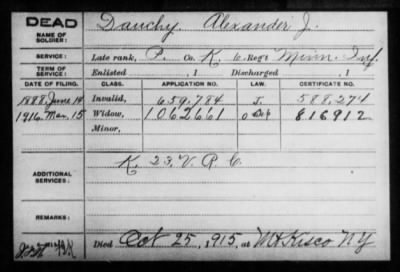 DEAD
NAME OF SOLDIER: Dauchy, Alexander J.
SERVICE: Late rank, P. Co. K, 6 Reg't Minn. Inf.
TERM OF SERVICE: Enlisted , 1 Discharged , 1
DATE OF FILING. CLASS. APPLICATION NO. LAW. CERTIFICATE NO.
1888. June 14 Invalid, 659.784 J. 588.274
1916. Mar. 15 Widow, 1062661 816912
Minor,
ADDITIONAL SERVICES: K. 23. V. R. C.
REMARKS:
Died Oct 25, 1915, at Mt Kisco N Y